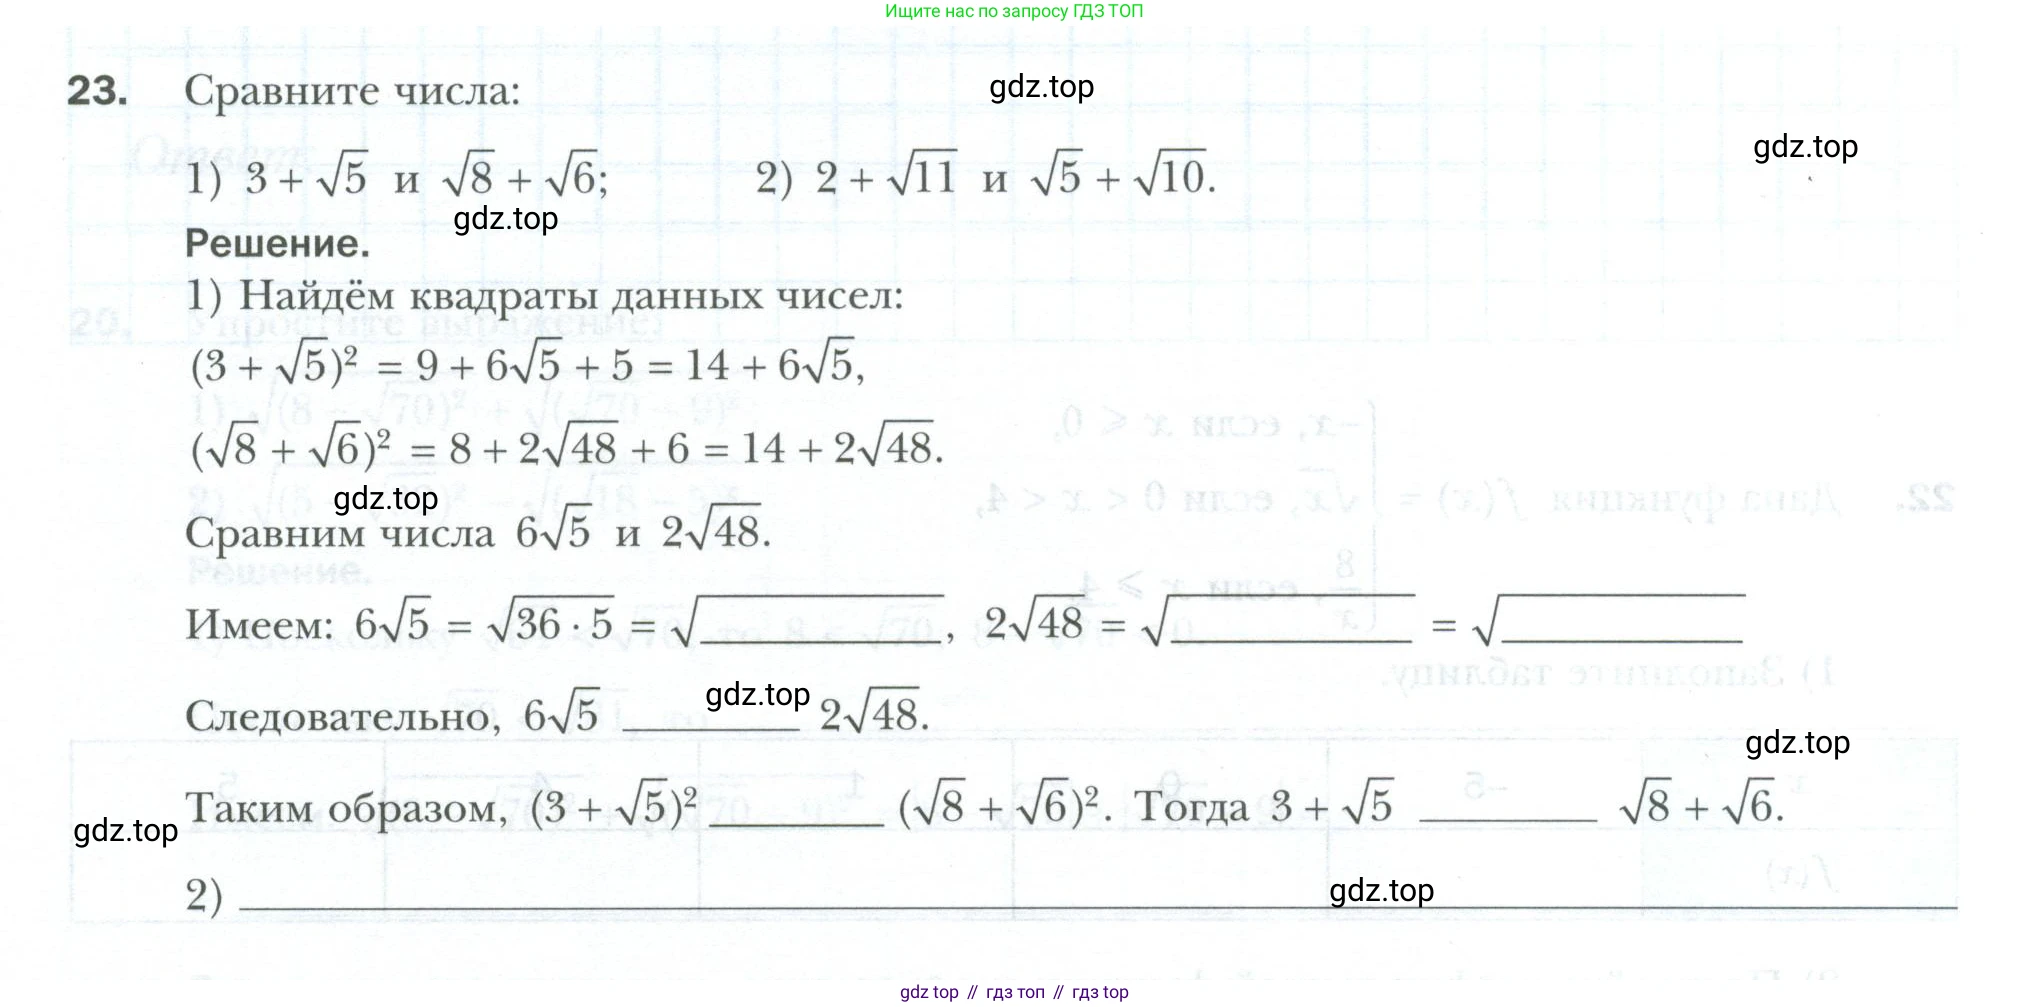 Ищите нас по запросу ГДЗ ТОП
23. Сравните числа:
gdz.top
gdz.top
1) 3 + √5 и √8 + √6; 2) 2 + √11 и √5 + √10.
gdz.top
Решение.
1) Найдём квадраты данных чисел:
(3 + √5)² = 9 + 6√5 + 5 = 14 + 6√5,
(√8 + √6)² = 8 + 2√48 + 6 = 14 + 2√48.
gdz.top
Сравним числа 6√5 и 2√48.
Имеем: 6√5 = √(36 · 5) = √____, 2√48 = √____ = √____
gdz.top
Следовательно, 6√5 ____ 2√48.
gdz.top
Таким образом, (3 + √5)² ____ (√8 + √6)². Тогда 3 + √5 ____ √8 + √6.
gdz.top
gdz.top
2) ____
gdz top // гдз топ // гдз top